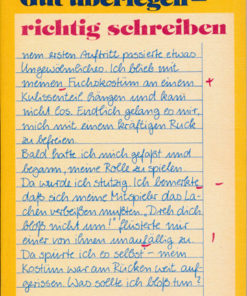 Gut überlegen –
richtig schreiben
nem ersten Auftritt passierte etwas
Ungewöhnliches. Ich blieb mit
meinem Fuchskostüm an einem
Kulissenteil hängen und kam
nicht los. Endlich gelang es mir,
mich mit einem kräftigen Ruck
zu befreien.
Bald hatte ich mich gefaßt und
begann, meine Rolle zu spielen.
Da wurde ich stutzig. Ich bemerkte,
daß sich meine Mitspieler das La-
chen verbeißen mußten. „Dreh dich
bloß nicht um!" flüsterte mir
einer von ihnen unauffällig zu.
Da spürte ich es selbst – mein
Kostüm war am Rücken weit auf-
gerissen. Was sollte ich bloß tun?